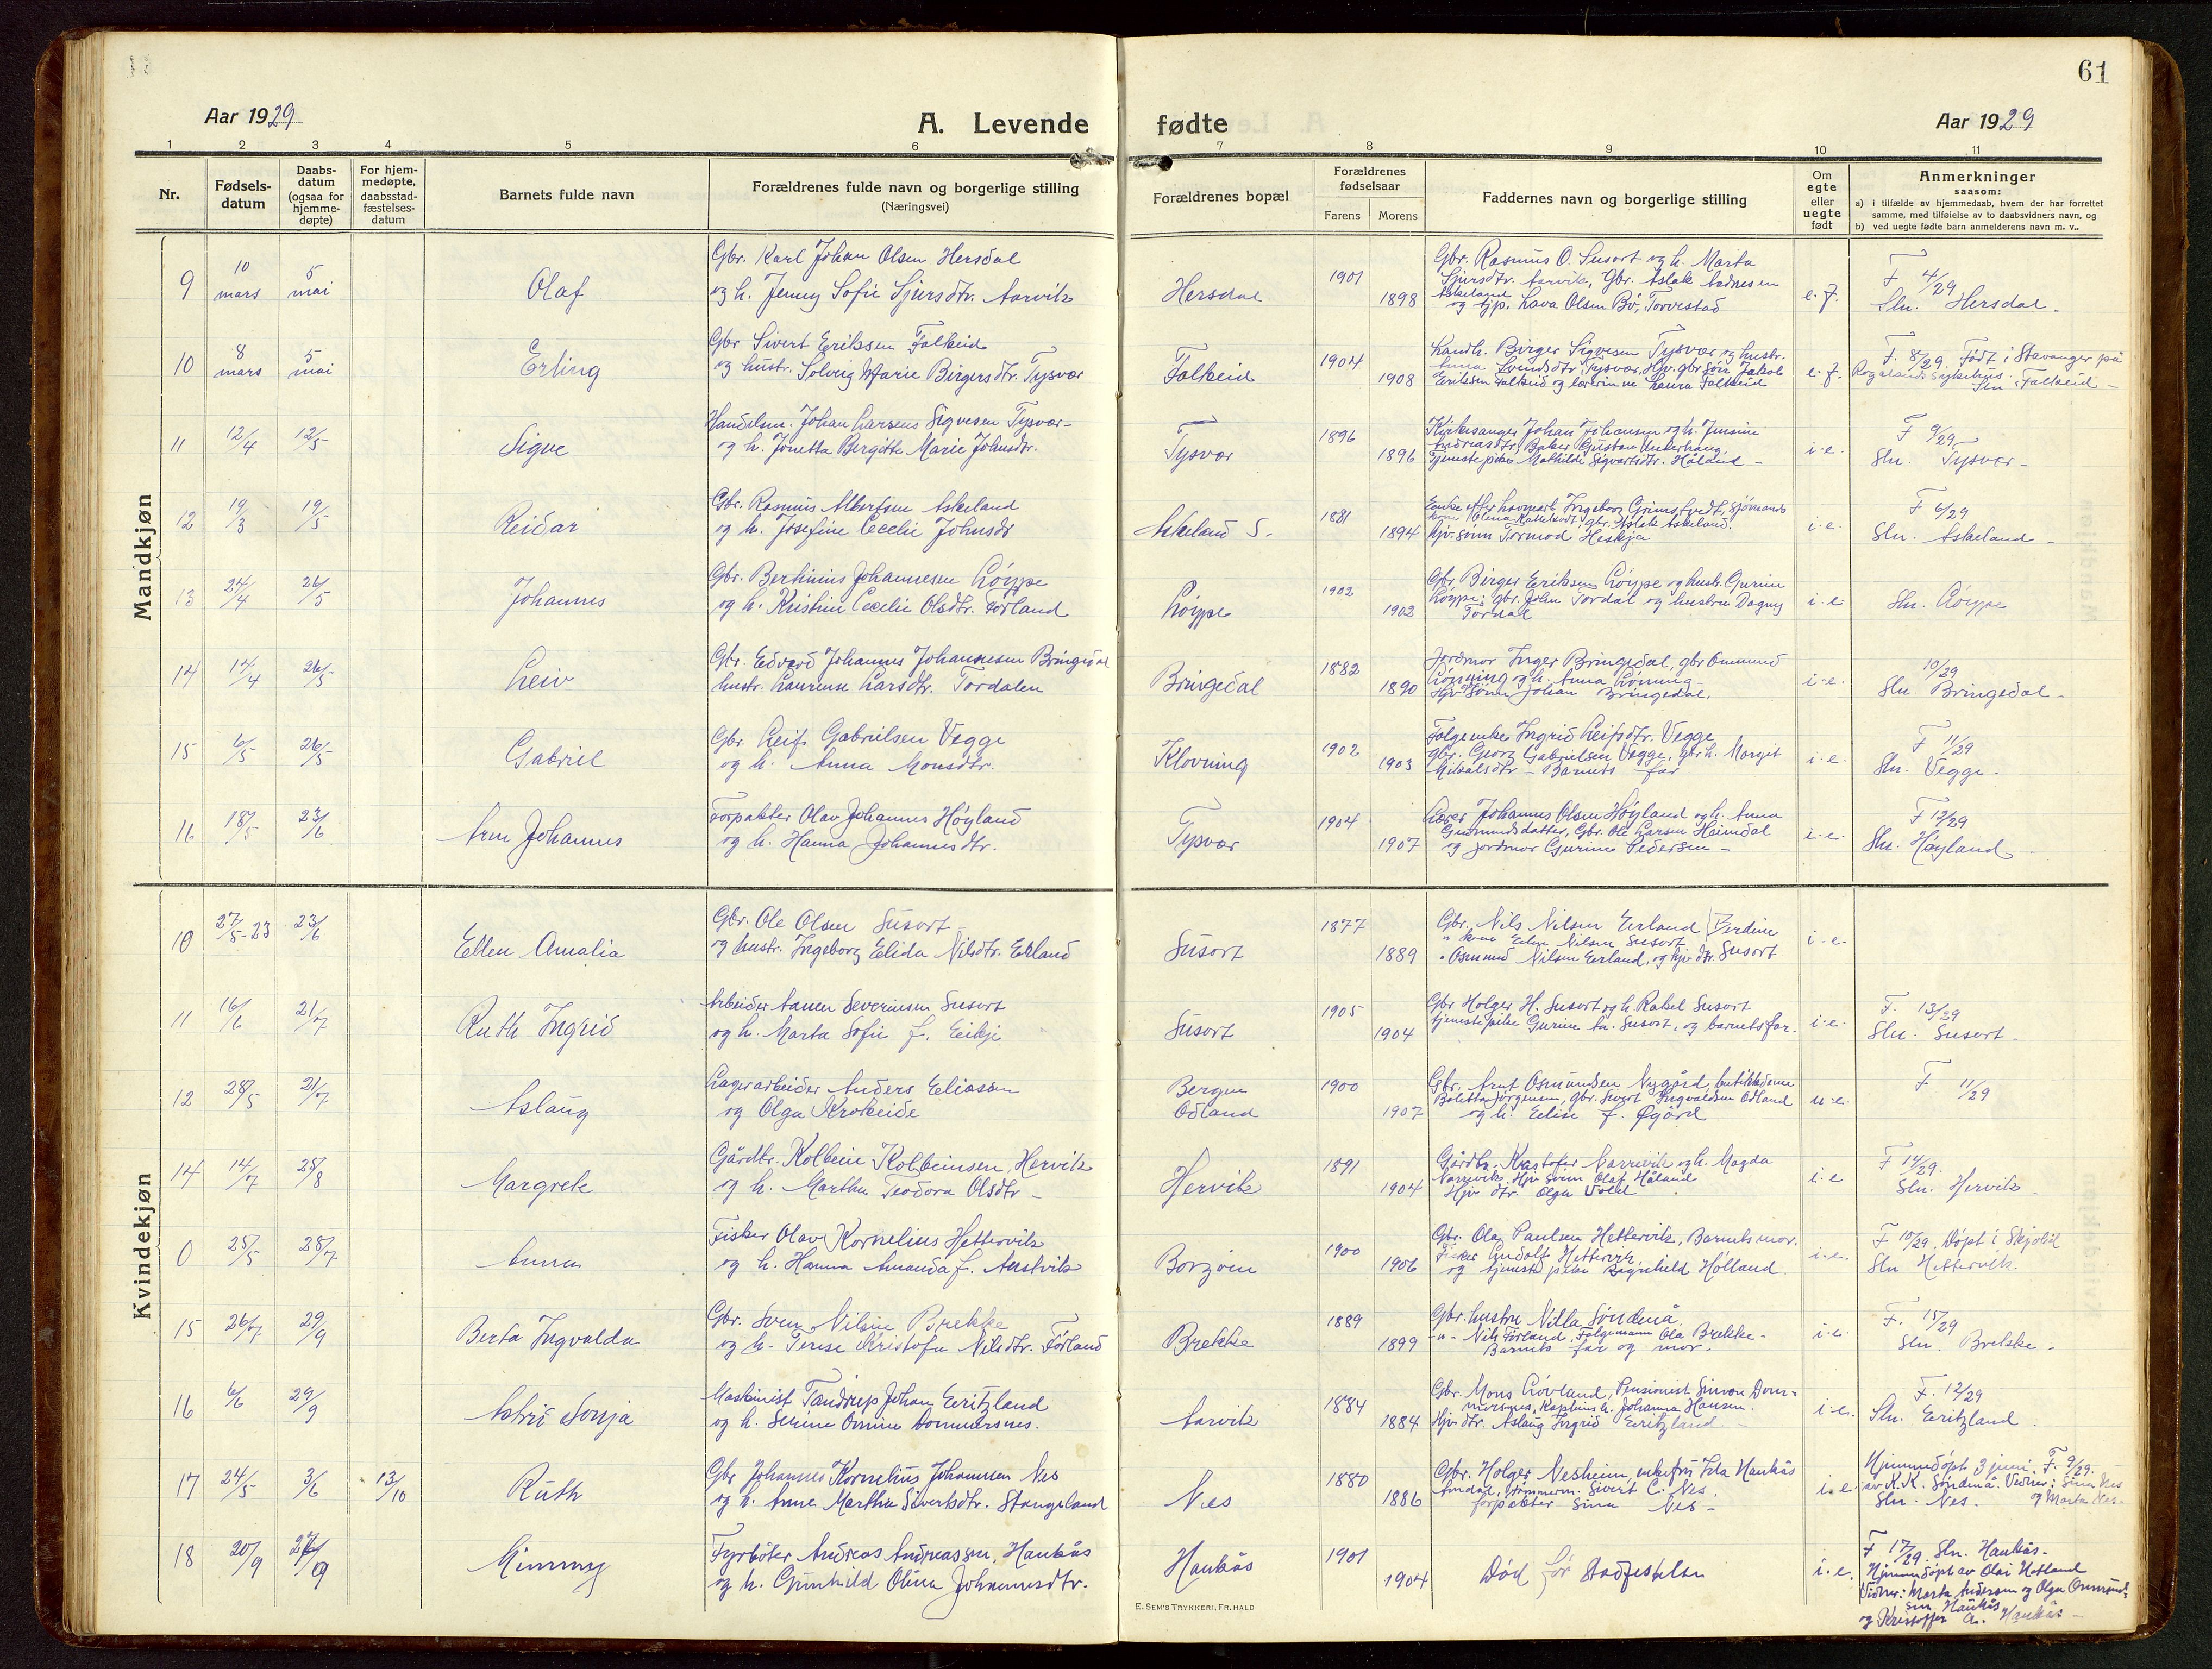 61
Aar 1929
A. Levende fødte
Aar 1929
1 2 3 4 5 6 7 8 9 10 11
Nr.
Fødsels-
datum
Daabs-
datum
(ogsaa for
hjemme-
døpte)
For hjem-
medøpte,
daabsstad-
fæstelses-
datum
Barnets fulde navn
Forældrenes fulde navn og borgerlige stilling
(Næringsvei)
Forældrenes bopæl
Forældrenes
fødselsaar
Farens Morens
Faddernes navn og borgerlige stilling
Om
egte
eller
uegte
født
Anmerkninger
saasom:
a) i tilfælde av hjemmedaab, hvem der har forrettet
samme, med tilføielse av to daabsvidners navn, og
b) ved uegte fødte barn anmelderens navn m. v..
Mandkjøn
9
10
mars
5
mai
Olaf
Gbr. Karl Johan Olsen Hersdal
og h. Jenny Sofie Sjursdtr. Aarvik
Hersdal
1901
1898
Gbr. Rasmus O. Susort og h. Marta
Sjursdtr. Aarvik, Gbr. Aslak Andresen
Askeland
og tjp. Lava Olsen Bø, Torvestad
e. f.
F 4/29
Sln. Hersdal
10
8
mars
5
mai
Erling
Gbr Sivert Eriksen Falkeid
og hustr. Solveig Marie Birgersdtr. Tysvær
Falkeid
1904
1908
Landh. Birger Sigvesen Tysvær og hustr.
Anna Svendsdtr Tysvær, Hjv. gbr søn Jakob
Eriksen Falkeid og lærerinne Laura Falkeid
e. f.
F. 8/29. Født i Stavanger på
Rogaland Sykehus.
Sln. Falkeid
11
12/4
12/5
Sigve
Handelsm. Johan Larsens Sigvesen Tysvær
og h. Jonetta Bergitte Marie Johnsdtr.
Tysvær
1896
1896
Kirkesanger Johan Johansen og h. Jensine
Andreasdtr, Baker Gustav Underhaug
Tjenestepike Mathilde Sigvartsdtr. Håland
i - e.
F 9/29
Sln. Tysvær
12
19/3
19/5
Reidar
Gbr. Rasmus Albertsen Askeland
og h. Josefine Cecelie Johnsdr
Askeland S.
1881
1894
Ingeborg Grimstvedt, sjømands
gbr. Aslak Askeland.
hjv. sønn Tormod Heskja
i - e.
F 6/29
Sln. Askeland
13
24/4
26/5
Johannes
Gbr. Berthinius Johannesen Løype
og h. Kristine Cecelie Olsdtr. Førland
Løype
1902
1902
Gbr Birger Eriksen Løype og hustr. Gurine
Løype, gbr. John Tordal og hustru Dagny
Tordal
i - e.
Sln. Løype
14
14/4
26/5
Leiv
Gbr. Edvard Johannes Johannesen Bringedal
hustr. Laurense Larsdtr. Tordalen
Bringedal
1882
1890
Jordmor Inger Bringedal, gbr Ommund
Lønning og h. Anna Lønning
Hjv sønn Johan Bringedal.
i - e.
10/29
Sln. Bringedal
15
6/5
26/5
Gabriel
Gbr. Leif Gabrielsen Vegge
og h. Anna Monsdtr.
Klovning
1902
1903
Folgeenke Ingrid Leifsdtr. Vegge
gbr. Georg Gabrielsen Vegge, gbr h. Margit
Mikalsdtr - Barnets far
i - e.
F 11/29
Sln. Vegge.
16
18/5
23/6
Arne Johannes
Forpakter Olav Johannes Høyland
og h. Hanna Johannesdtr.
Tysvær
1904
1907
Lærer Johannes Olsen Høyland og h. Anna
Gudmundsdatter, Gbr. Ole Larsen Heimdal
og jordmor Gurine Pedersen
i - e.
F 12/29
Sln. Høyland
Kvindekjøn
10
27/5-23
23/6
Ellen Amalia
Gbr. Ole Olsen Susort
og hustr. Ingeborg Elida Nilsdtr. Erland
Susort
1877
1889
Gbr. Nils Nilsen Erland
Nilsen Susort
Osmund Nilsen Eerland, og hjv. dtr Susort
i - e.
11
16/6
21/7
Ruth Ingrid
Arbeider Aanen Severinsen Susort
og h. Marta Sofie f. Eikje
Susort
1905
1904
Gbr Holger H. Susort og h. Rakel Susort
tjenestepike Gurine Aa. Susort, og barnets far.
i - e.
F. 13/29
Sln. Susort.
12
28/5
21/7
Aslaug
Lagerarbeider Anders Eliassen
og Olga Krokeide
Bergen
Odland
1900
1907
Gbr. Arnt Osmundsen Nygård, butikkdame
Bolette Jørgensen, gbr. Sivert Ingvaldsen Odland
og h. Elise f. Øgård
u - e.
F 11/29
14
14/7
25/8
Margrete
Gårdbr. Kolbein Kolbeinsen, Hervik
og h. Martha Teodora Olsdtr
Hervik
1891
1904
Gårdbr. Kristofer Narrevik og h. Magda
Narrevik. Hjv sønn Olaf Håland
Hjv dtr. Olga Vold
i - e
F 14/29.
Sln. Hervik
0
25/5
28/7
Anna
Fisker Olav Kornelius Hettervik
og h. Hanna Amanda f. Austvik
Borgøen
1900
1906
Gbr. Ola Paulsen Hettervik, Barnets mor.
Fisker Andolf Hettervik
og tjenestepike Ragnhild Hålland
i - e.
F 10/29. Døpt i Skjold
Sln Hettervik.
15
26/7
29/9
Berta Ingvalda
Gbr. Sven Nilsen Brekke
og h. Terese Kristofa Nilsdtr. Førland
Brekke
1889
1899
Gbr. hustru Nilla Søndenå
-"- Nils Førland, Folgemann Ola Brekke -
Barnets far og mor.
i - e.
F. 15/29
Sln. Brekke.
16
6/6
29/9
Astri Sonja
Maskinist Tandrup Johan Eeritzland
og h. Serine Omine Dommersnes.
Aarvik
1884
1884
Gbr. Mons Løvland, Pensionist Simon Dom-
mersnes, Kapteinsh. Johanna Hansen.
Hjv dtr. Aslaug Ingrid Eeritzland.
i - e.
F. 12/29
Sln. Eeritzland.
17
24/5
3/6
13/10
Ruth
Gbr Johannes Kornelius Johannsen Nes
og h. Anne Martha Sivertsdtr. Stangeland
Nes
1880
1886
Gbr. Holger Nesheim, enkefru Ida Haukås
tømmerm. Sivert C. Nes.
forpakter Sina Nes -
i - e.
Hjemmedøpt 3 juni. F. 9/29.
av K.K. Søndenå. Vidner: Sina Nes
Sln. Nes. og Marta Nes.
18
20/9
Kimmy
Fyrbøter Andreas Andreassen, Haukås
og h. Gunhild Olina Johannesdtr.
Haukås
1901
1904
Død før Stadfestelsen
i - e.
F 17/29. Sln. Haukås.
Hjemmedøpt av Olai Hetland
Vidner: Marta Andersen og Olga Osmund-
sen Haukås
og Kristoffer A. Haukås
E. SEM'S TRYKKERI, FR. HALD